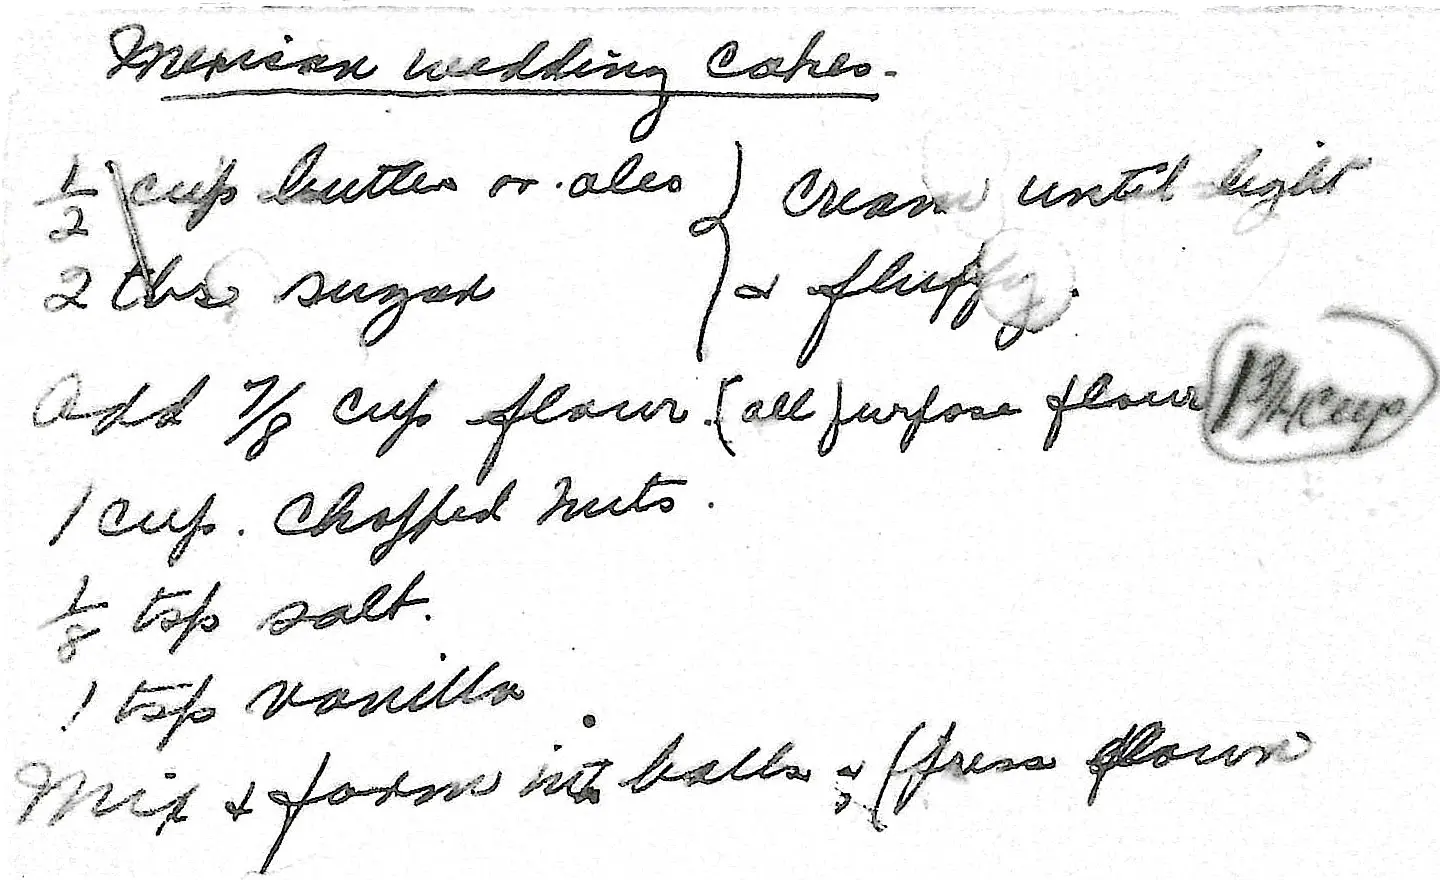 Mexican wedding Cakes.
1/2 cup butter or oleo } Cream until light
2 tbs sugar } & fluffy.
Add 7/8 cup flour. (all purpose flour 1 3/4 cup
1 cup. Chopped Nuts.
1/8 tsp salt.
1 tsp vanilla
Mix & form into balls ; (press down